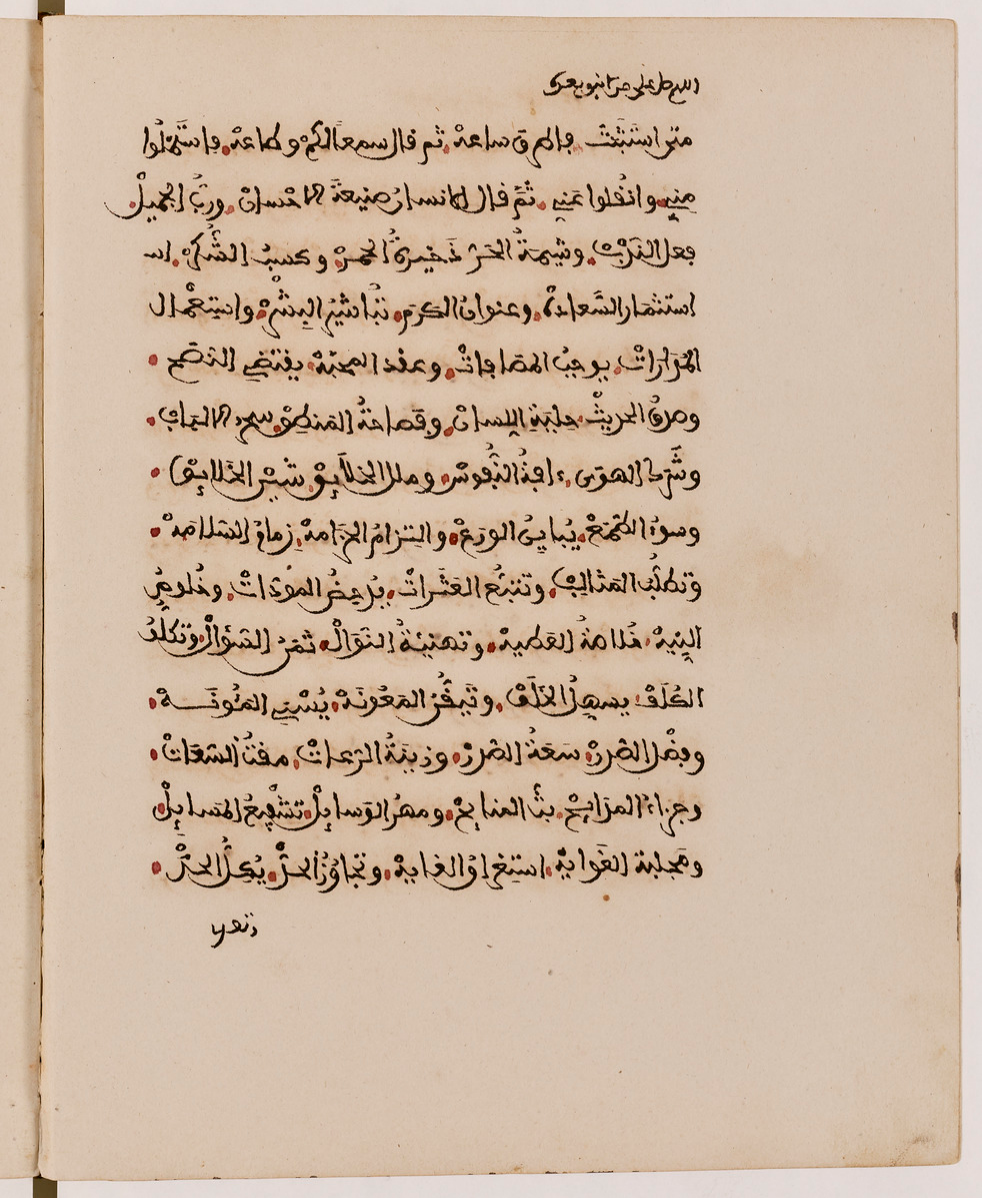 اللهم صل على من لا نبي بعده
فاطرق ساعة ثم قال سمعا لكم وطاعة فاستملوا
مني وانقلوا عني ثم قال الانسان صنيعة الاحسان ورب الجميل
فعل الندب وشيمة الحر ذخيرة الحمد وكسب الشكر اسـ
استثمار السعادة وعنوان الكرم تباشير البشر واستعمال
المدارات يوجب المصافات وعقد المحبة يقتضي النصح
وصدق الحديث حلية اللسان وفصاحة المنطق سحر الالباب
وشرك الهوى ءافة النفوس وملل الخلايق شين الخلايق
وسوء الطمع يباين الورع والتزام الحزامة زمام السلامة
وتطلب المثالب وتتبع العثرات يدحض المودات وخلوص
النية خلاصة العطية وتهنية النوال ثمن السؤال وتكلف
الكلف يسهل الخلف وتيقن المعونة يسني المئونـة
وفضل الصدر سعة الصدر وزينة الرعات مقت السعات
وجزاء المدايح بث المنايح ومهر الوسايل تشفيع المسايل
ومجلبة الغواية استغراق الغاية وتجاوز الحد يكل الحد
وتعدي